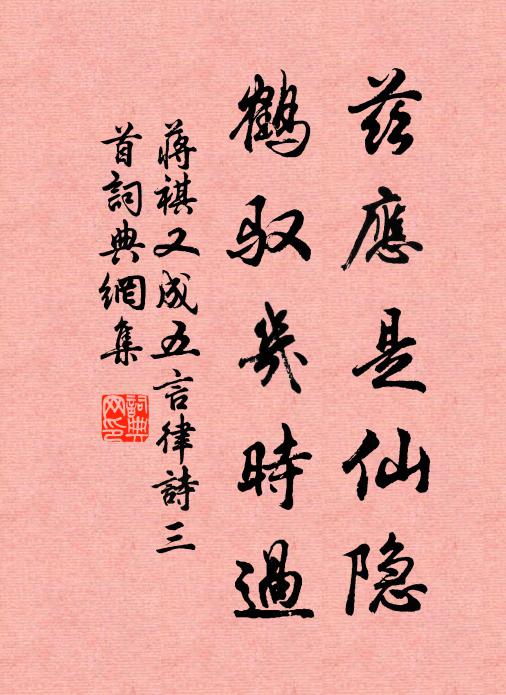 茲應是仙隐
鶴驭幾時過
蔣祺又成五言律詩三
首詞典網集
詞典
网印